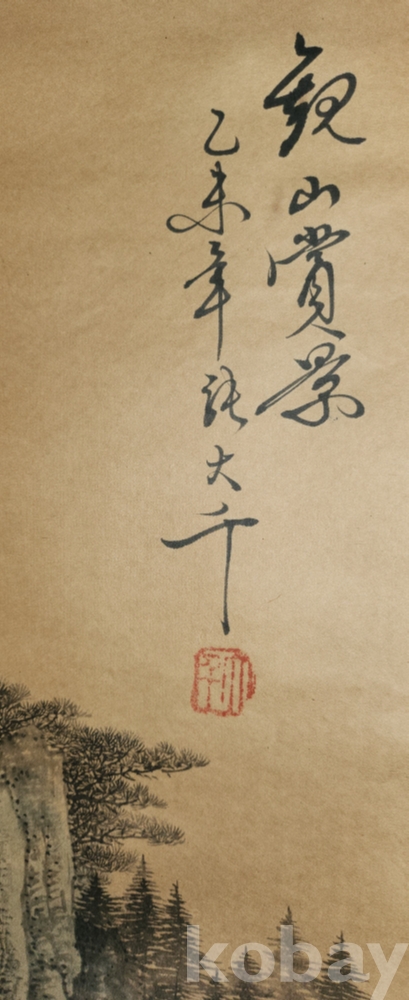 観山賞景
乙未年張大千
kobay